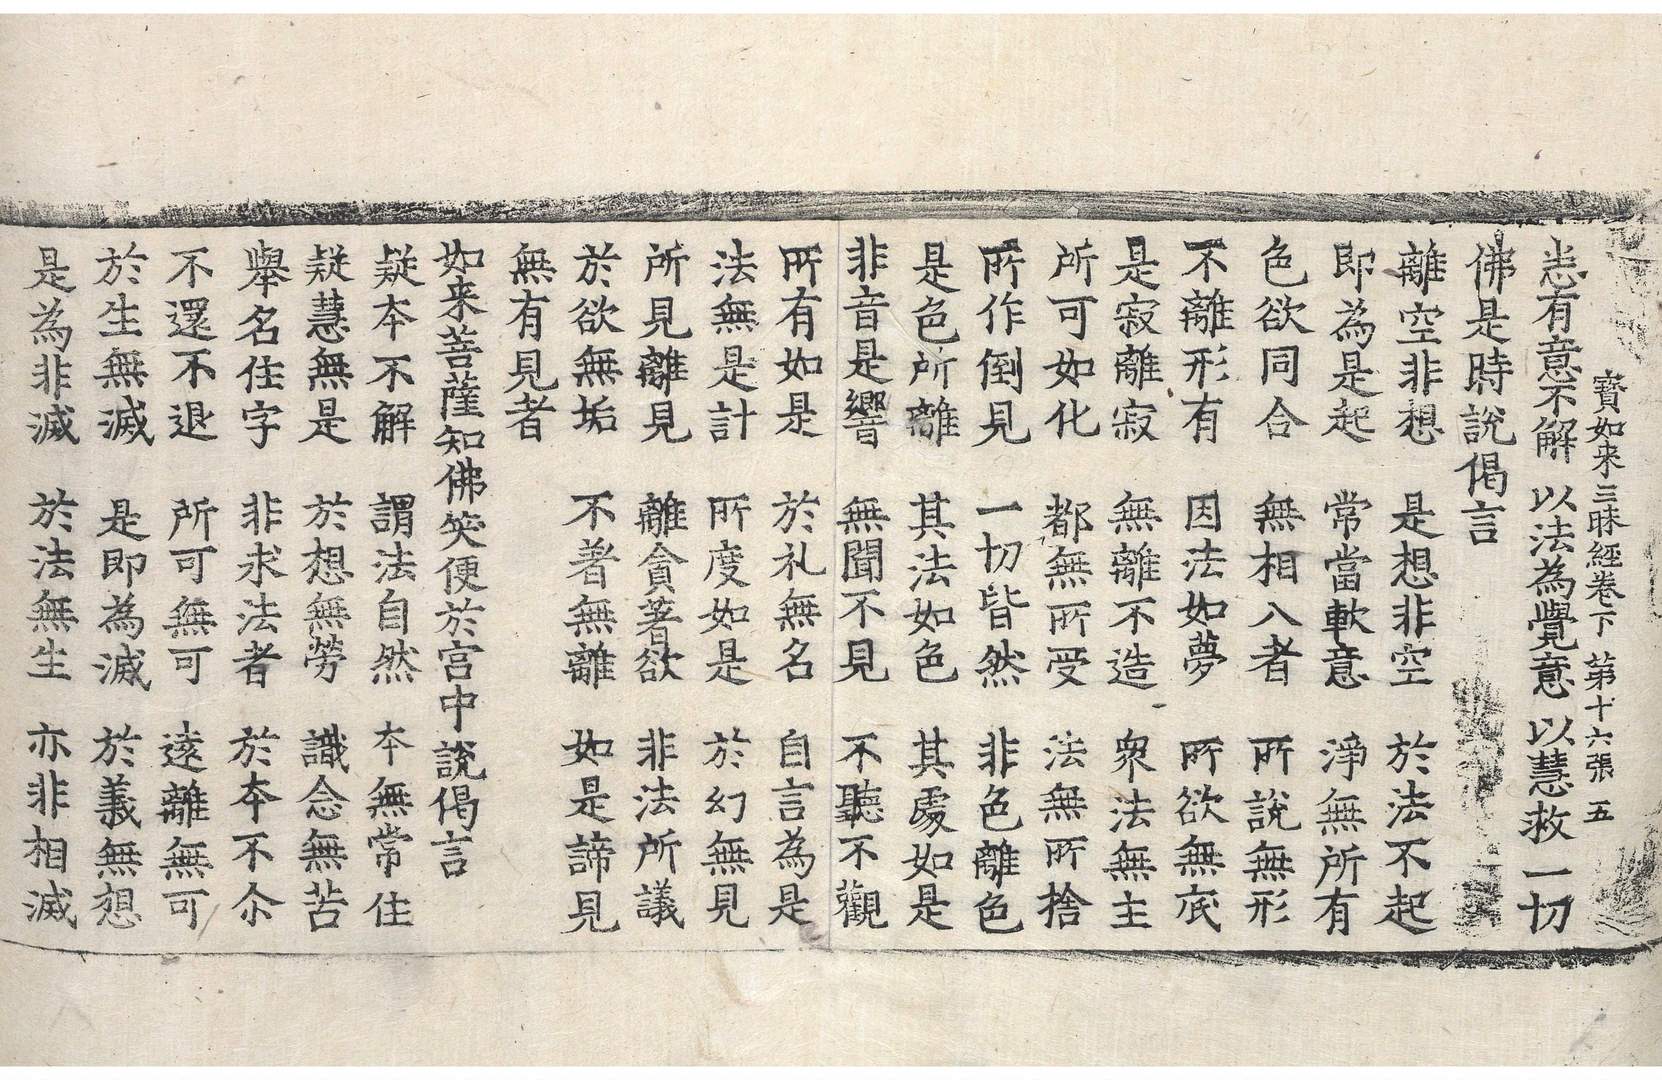 寶如来三昧經卷下 第十六張 五
恙有意不解 以法為覺意 以慧救一切
佛是時說偈言
離空非想 是想非空 於法不起
即為是起 常當軟意 淨無所有
色欲同合 無相入者 所說無形
不離形有 因法如夢 所欲無底
是寂離寂 無離不造 衆法無主
所可如化 都無所受 法無所捨
所作倒見 一切皆然 非色離色
是色所離 其法如色 其處如是
非音是響 無聞不見 不聽不觀
所有如是 於礼無名 自言為是
法無是計 所度如是 於幻無見
所見離見 離貪著欲 非法所議
於欲無垢 不著無離 如是諦見
無有見者
如来菩薩知佛笑便於宫中說偈言
疑本不解 謂法自然 本無常住
疑慧無是 於想無勞 識念無苦
舉名住字 非求法者 於本不尒
不還不退 所可無可 遠離無可
於生無滅 是即為滅 於義無想
是為非滅 於法無生 亦非相滅